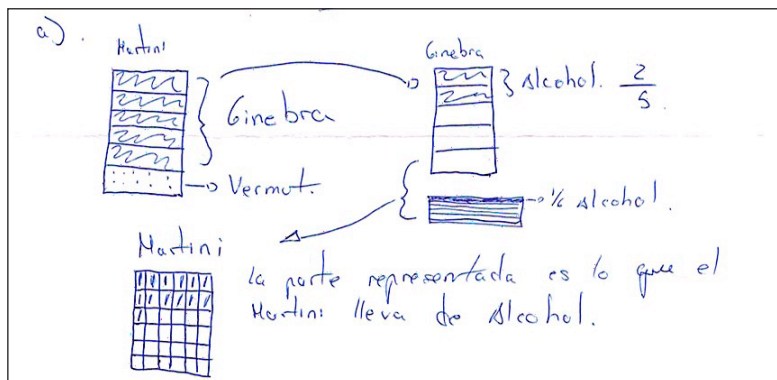 a).
Martini
Ginebra
Ginebra
Alcohol. 2/5
Vermut.
1/6 Alcohol.
Martini
la parte representada es lo que el
Martini lleva de Alcohol.